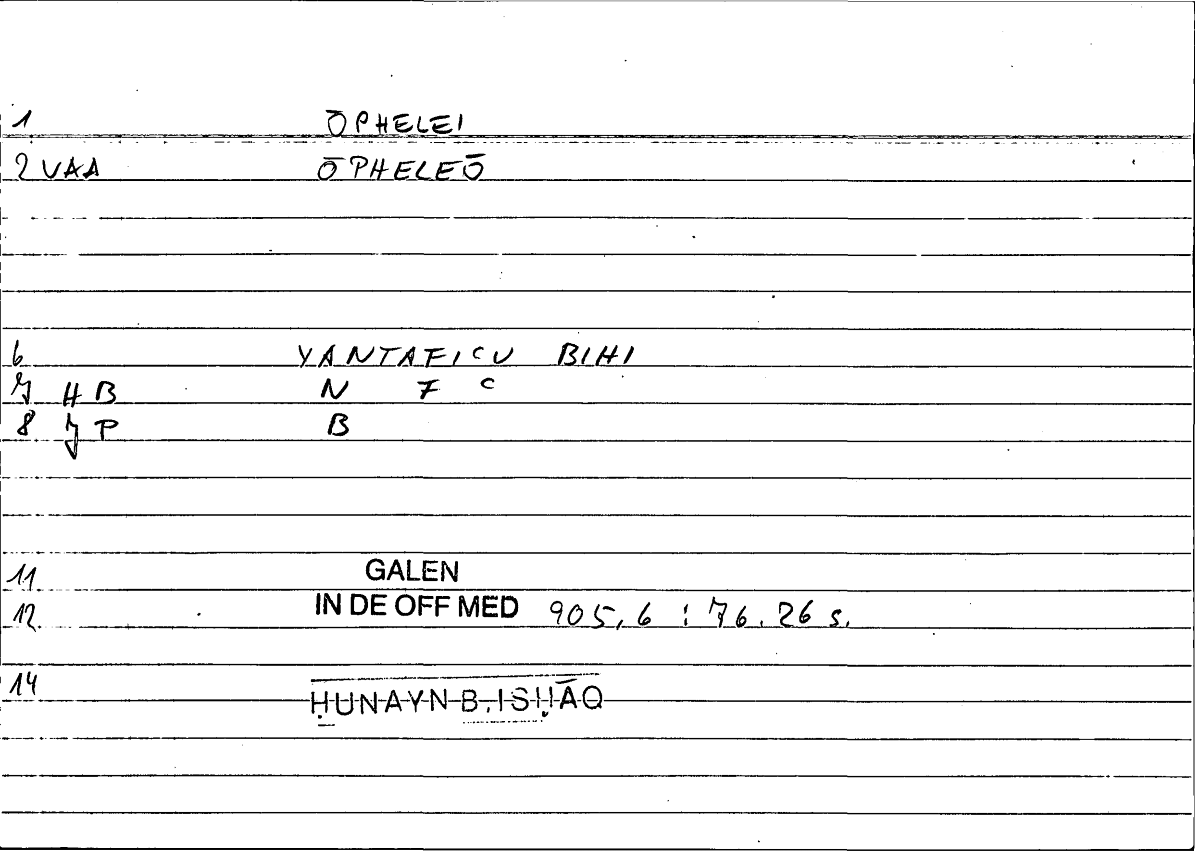 1 ŌPHELEI
2 VAA ŌPHELEŌ
6 YANTAFICU BIHI
7 HB N F C
8 JP B
11 GALEN
12 IN DE OFF MED 905,6 : 76.26 s.
14 ḤUNAYN B. ISḤĀQ